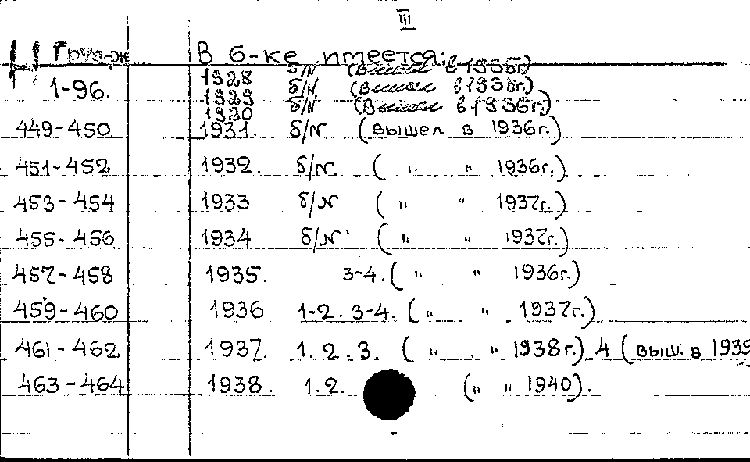 III
Груз-ж В б-ке имеется:
1928 б/N (Вышел в 1935г.)
1-96. 1929 б/N (Вышел в 1935г.)
1930 б/N (Вышел в 1936г.)
449-450 1931. б/N (вышел в 1936г.)
451-452 1932. б/N. ( " " 1936г.)
453-454 1933 б/N ( " " 1937г.)
455-456 1934 б/N ( " " 1937г.)
457-458 1935. 3-4. ( " " 1936г.)
459-460 1936 1-2. 3-4. ( " " 1937г.)
461-462 1937. 1. 2. 3. ( " " 1938г.) 4 (выш. в 1939
463-464 1938. 1.2. ( " " 1940).